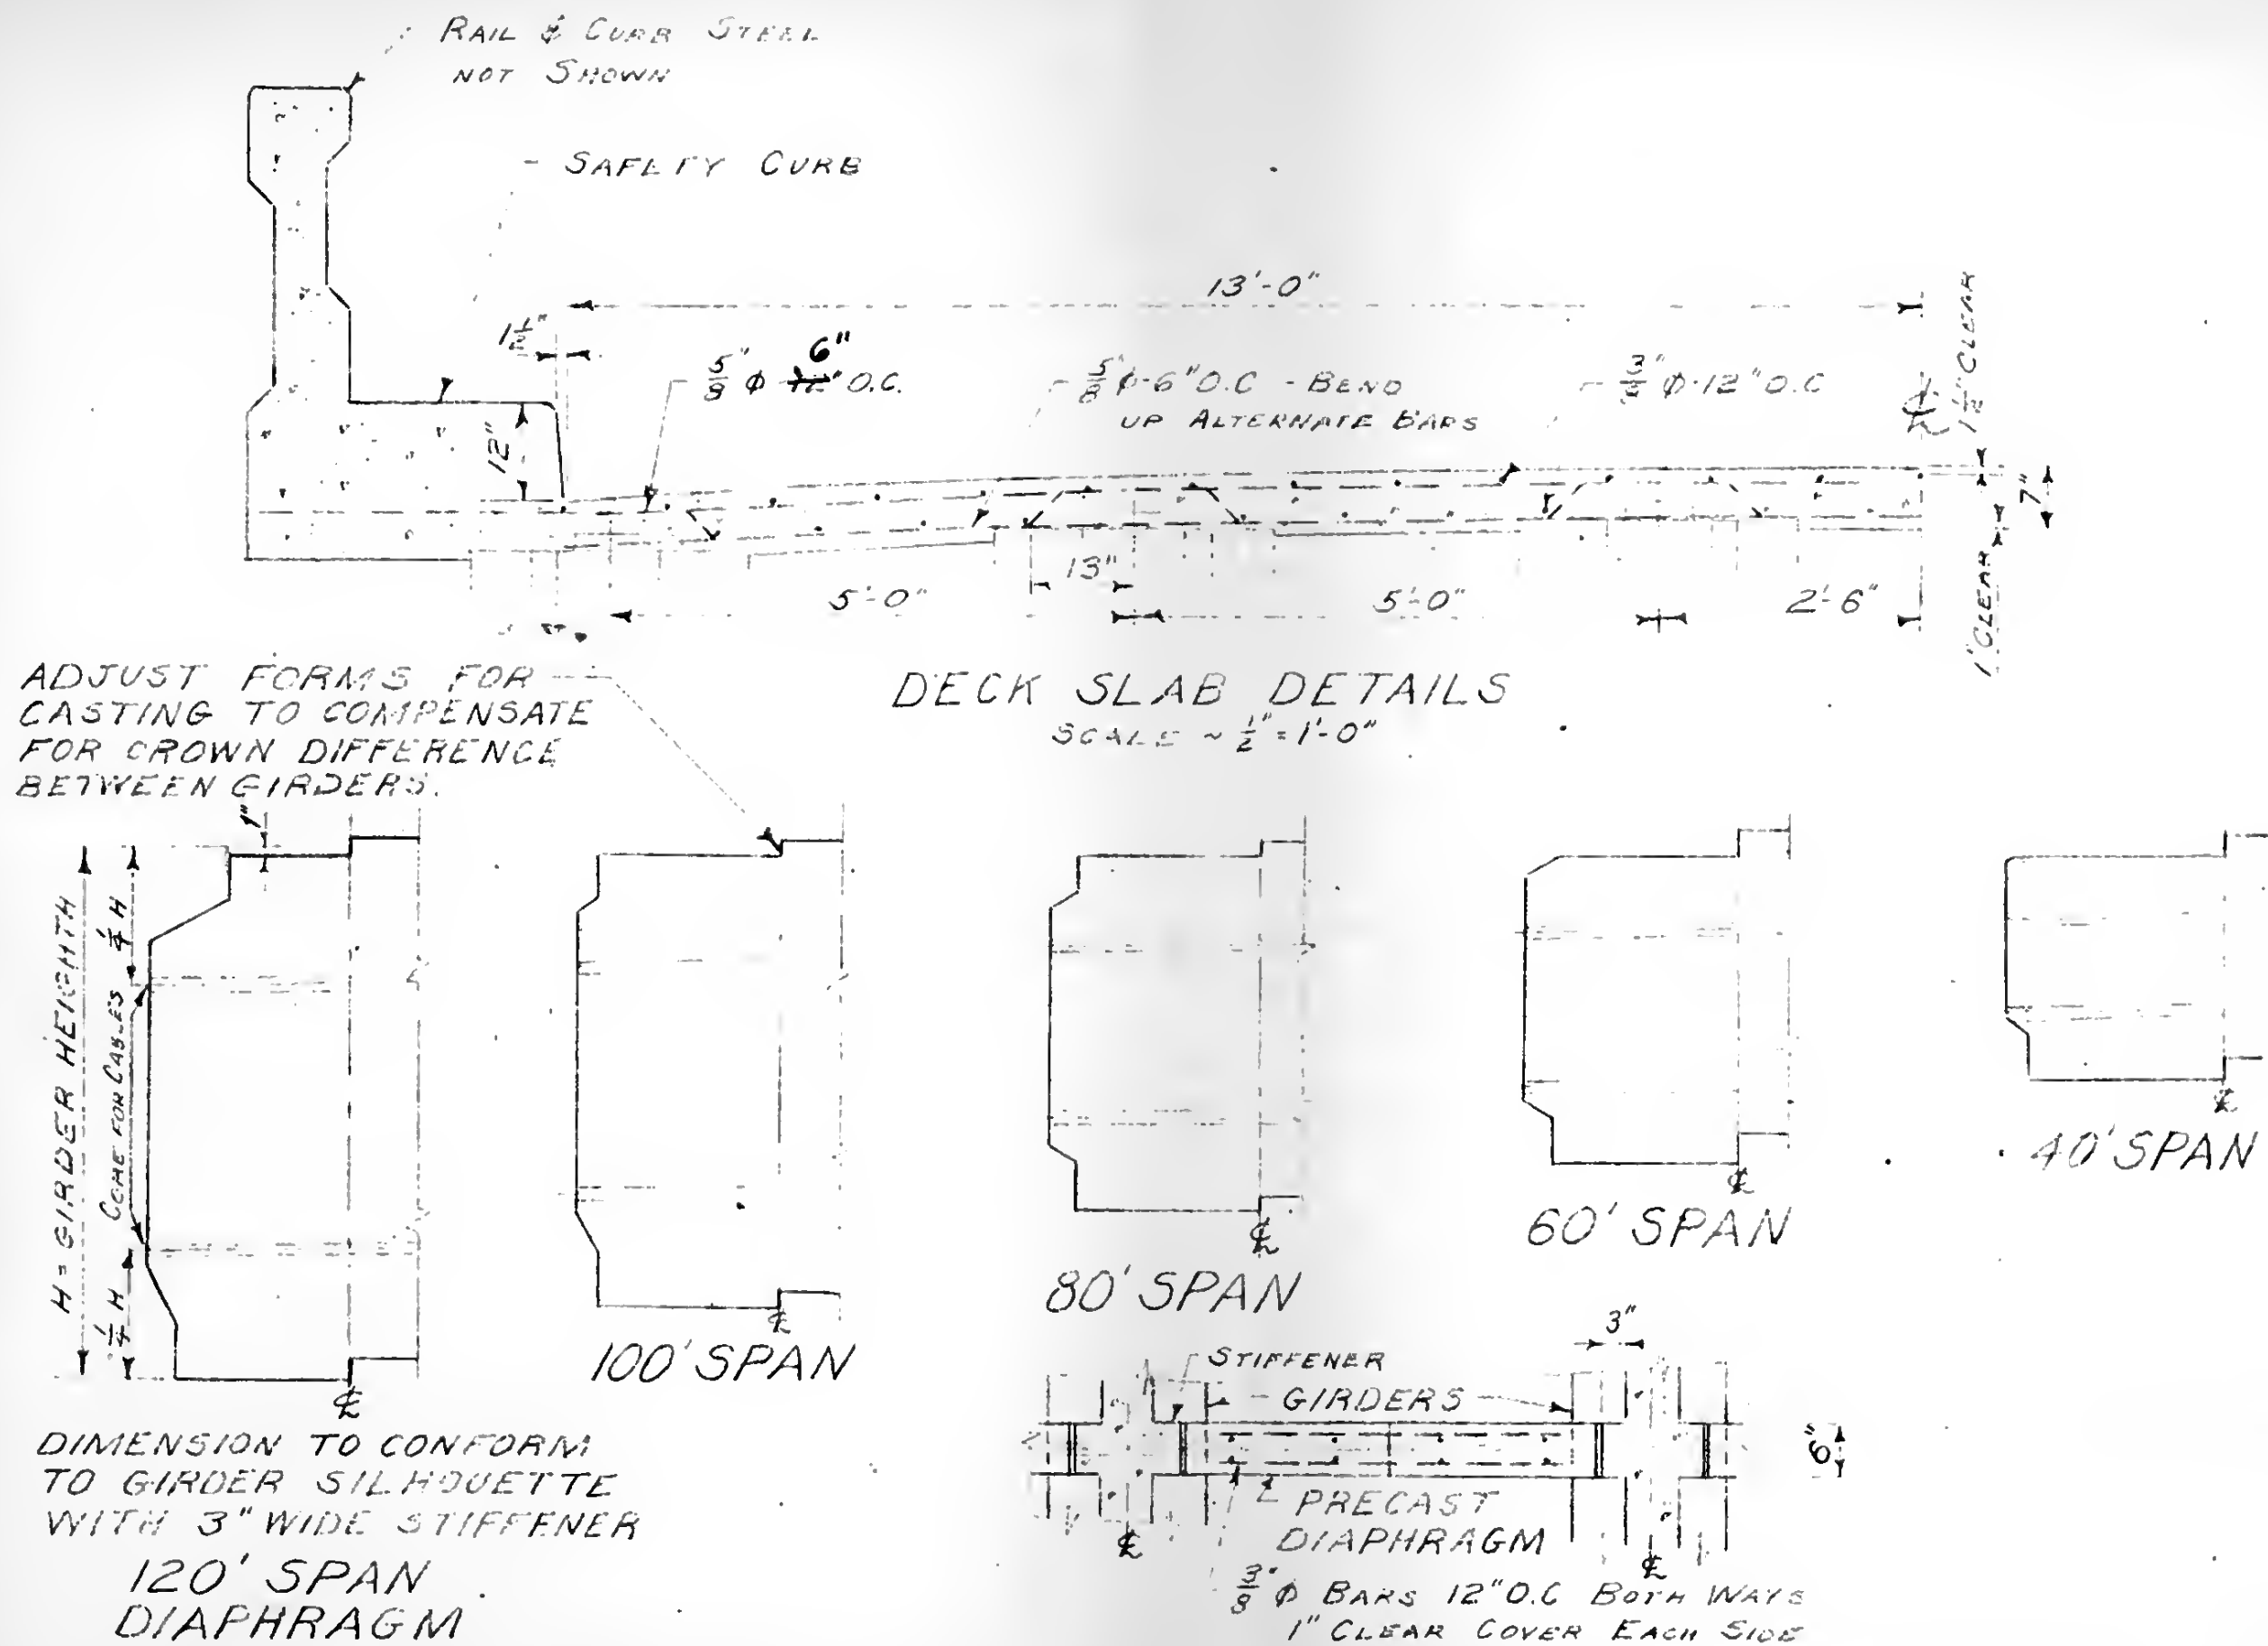 RAIL & CURB STEEL
NOT SHOWN
- SAFETY CURB
13'-0"
1½"
⅝" ϕ 6" O.C.
⅝" ϕ-6" O.C - BEND
UP ALTERNATE BARS
ϕ-12" O.C
1½" CLEAR
℄
12"
7"
1" CLEAR
13"
5'-0"
5'-0"
2'-6"
DECK SLAB DETAILS
SCALE ~ ½" = 1'-0"
ADJUST FORMS FOR
CASTING TO COMPENSATE
FOR CROWN DIFFERENCE
BETWEEN GIRDERS.
1"
H = GIRDER HEIGHTH
¼ H
FOR CABLES
¼ H
℄
℄
100' SPAN
℄
80' SPAN
℄
60' SPAN
℄
40' SPAN
DIMENSION TO CONFORM
TO GIRDER SILHOUETTE
WITH 3" WIDE STIFFENER
120' SPAN
DIAPHRAGM
3"
STIFFENER
GIRDERS
6"
PRECAST
DIAPHRAGM
℄
℄
⅜" ϕ BARS 12" O.C BOTH WAYS
1" CLEAR COVER EACH SIDE